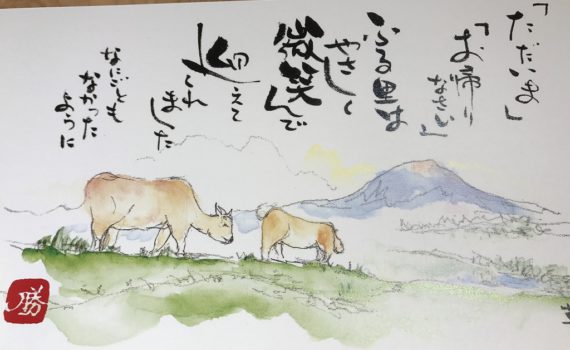 「ただいま」
「お帰り
なさい」
ふる里は
やさしく
微笑んで
迎えて
くれ
ました
なにごとも
なかった
ように
勝